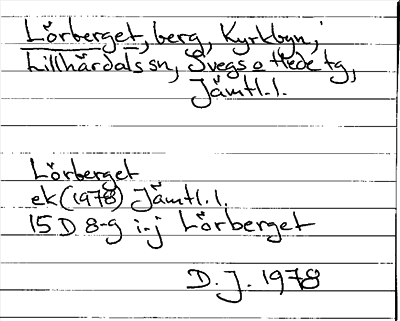 Lörberget, berg, Kyrkbyn,
Lillhärdals sn, Svegs o Hede tg,
Jämtl. l.
Lörberget
ek (1978) Jämtl. l.
15 D 8-9 i-j Lörberget
D. J. 1978